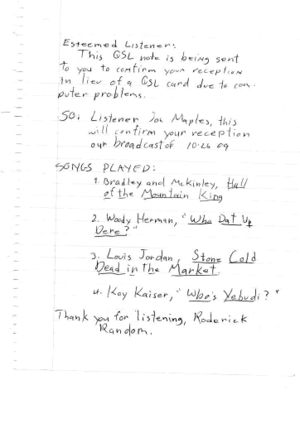 Esteemed Listener:
This QSL note is being sent
to you to confirm your reception
in lieu of a QSL card due to com-
puter problems.
SO: Listener Joe Maples, this
will confirm your reception
our broadcast of 10-26 09
SONGS PLAYED:
1. Bradley and McKinley, Hall
of the Mountain King
2. Woody Herman, "Who Dat Up
Dere?"
3. Louis Jordan, Stone Cold
Dead in the Market.
4. Kay Kaiser, "Who's Yehudi?"
Thank you for listening, Roderick
Random.